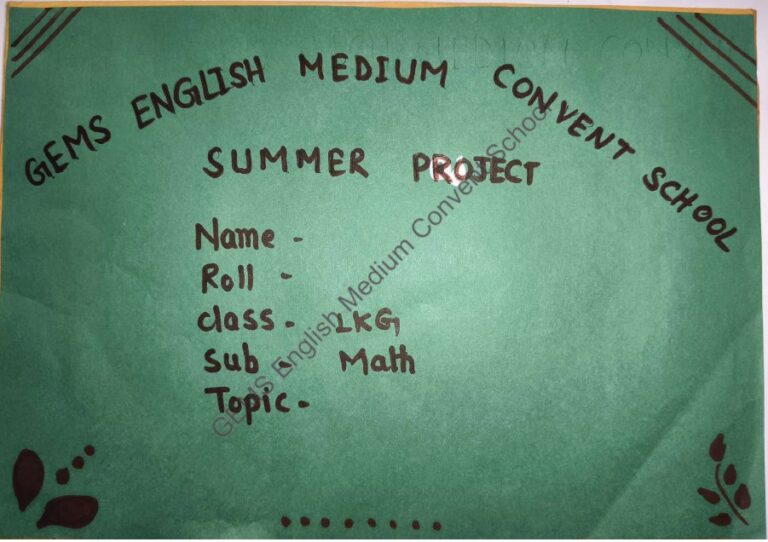 GEMS ENGLISH MEDIUM CONVENT SCHOOL
SUMMER PROJECT
Name -
Roll -
class - LKG
Sub - Math
Topic -
GEMS English Medium Convent School